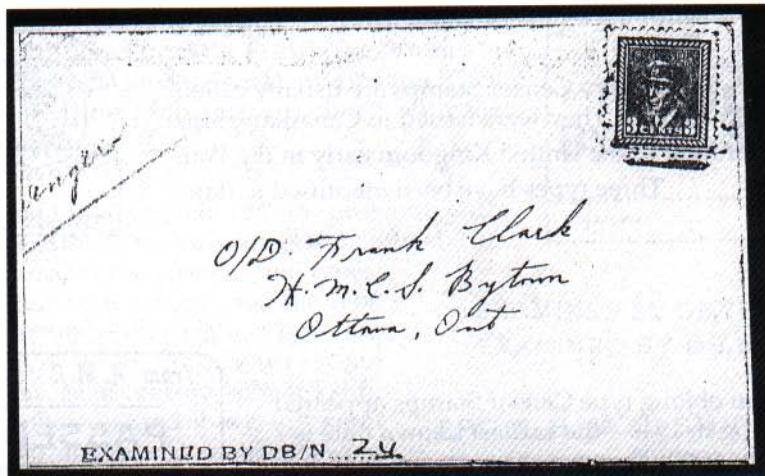 3 3
O/D. Frank Clark
H.M.C.S. Bytown
Ottawa, Ont
EXAMINED BY DB/N 24